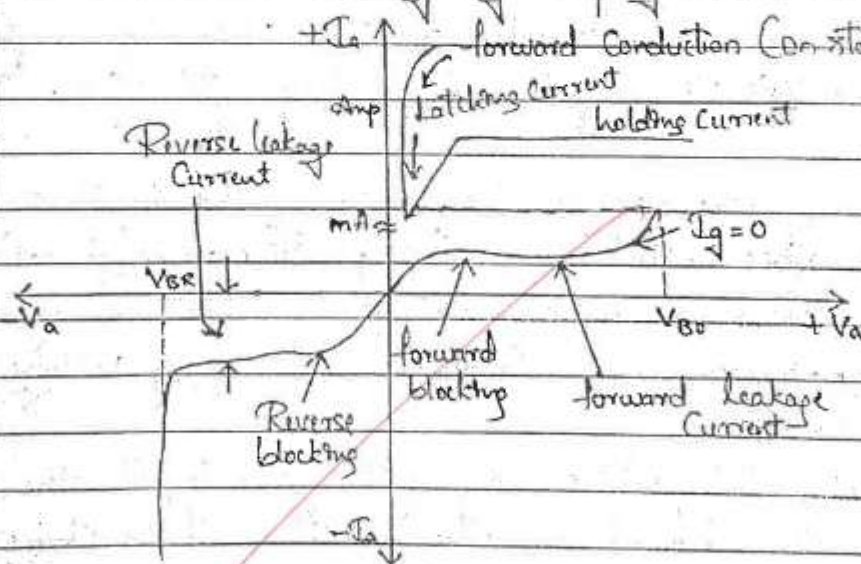 +Ia
forward Conduction (On-state
Latching Current
Amp
holding Current
Reverse leakage
Current
mA
Ig = 0
VBR
Va
VBo
+ Va
forward
blocking
forward leakage
Current
Reverse
blocking
-Ia